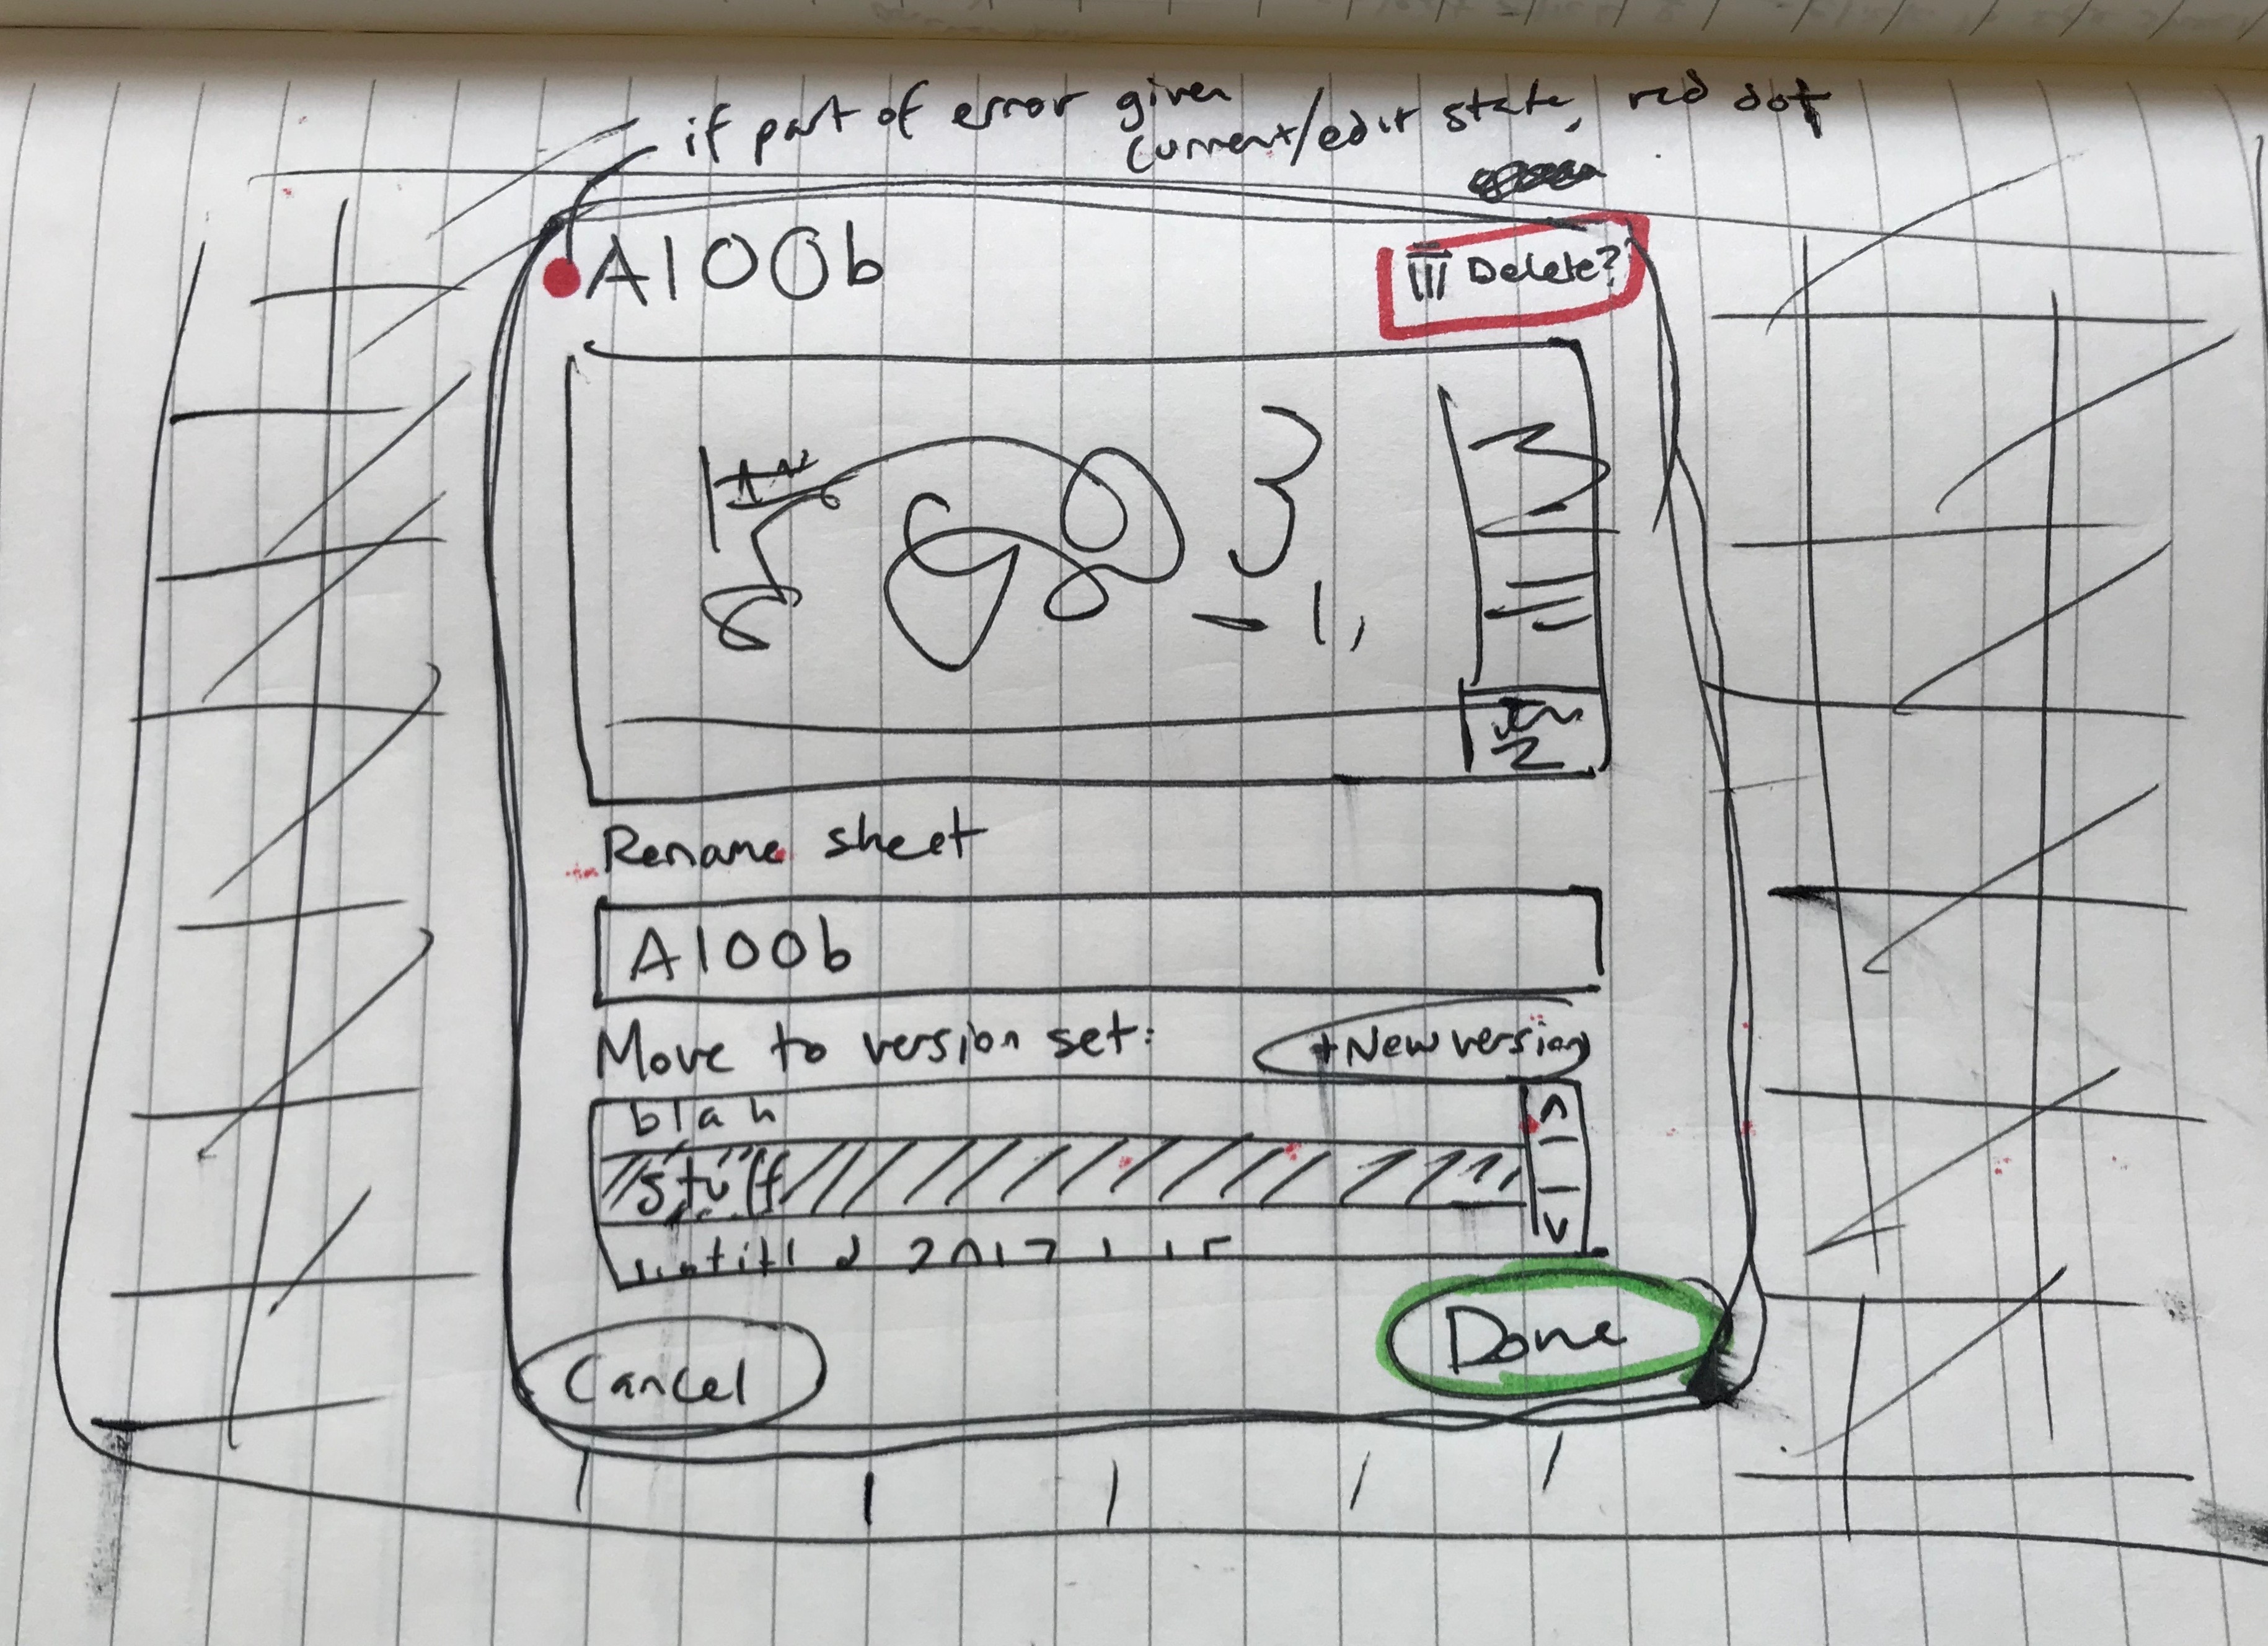 if part of error given
current/edit state, red dot
A100b
Delete?
Rename sheet
A100b
Move to version set:
+New version
blah
stuff
Cancel
Done